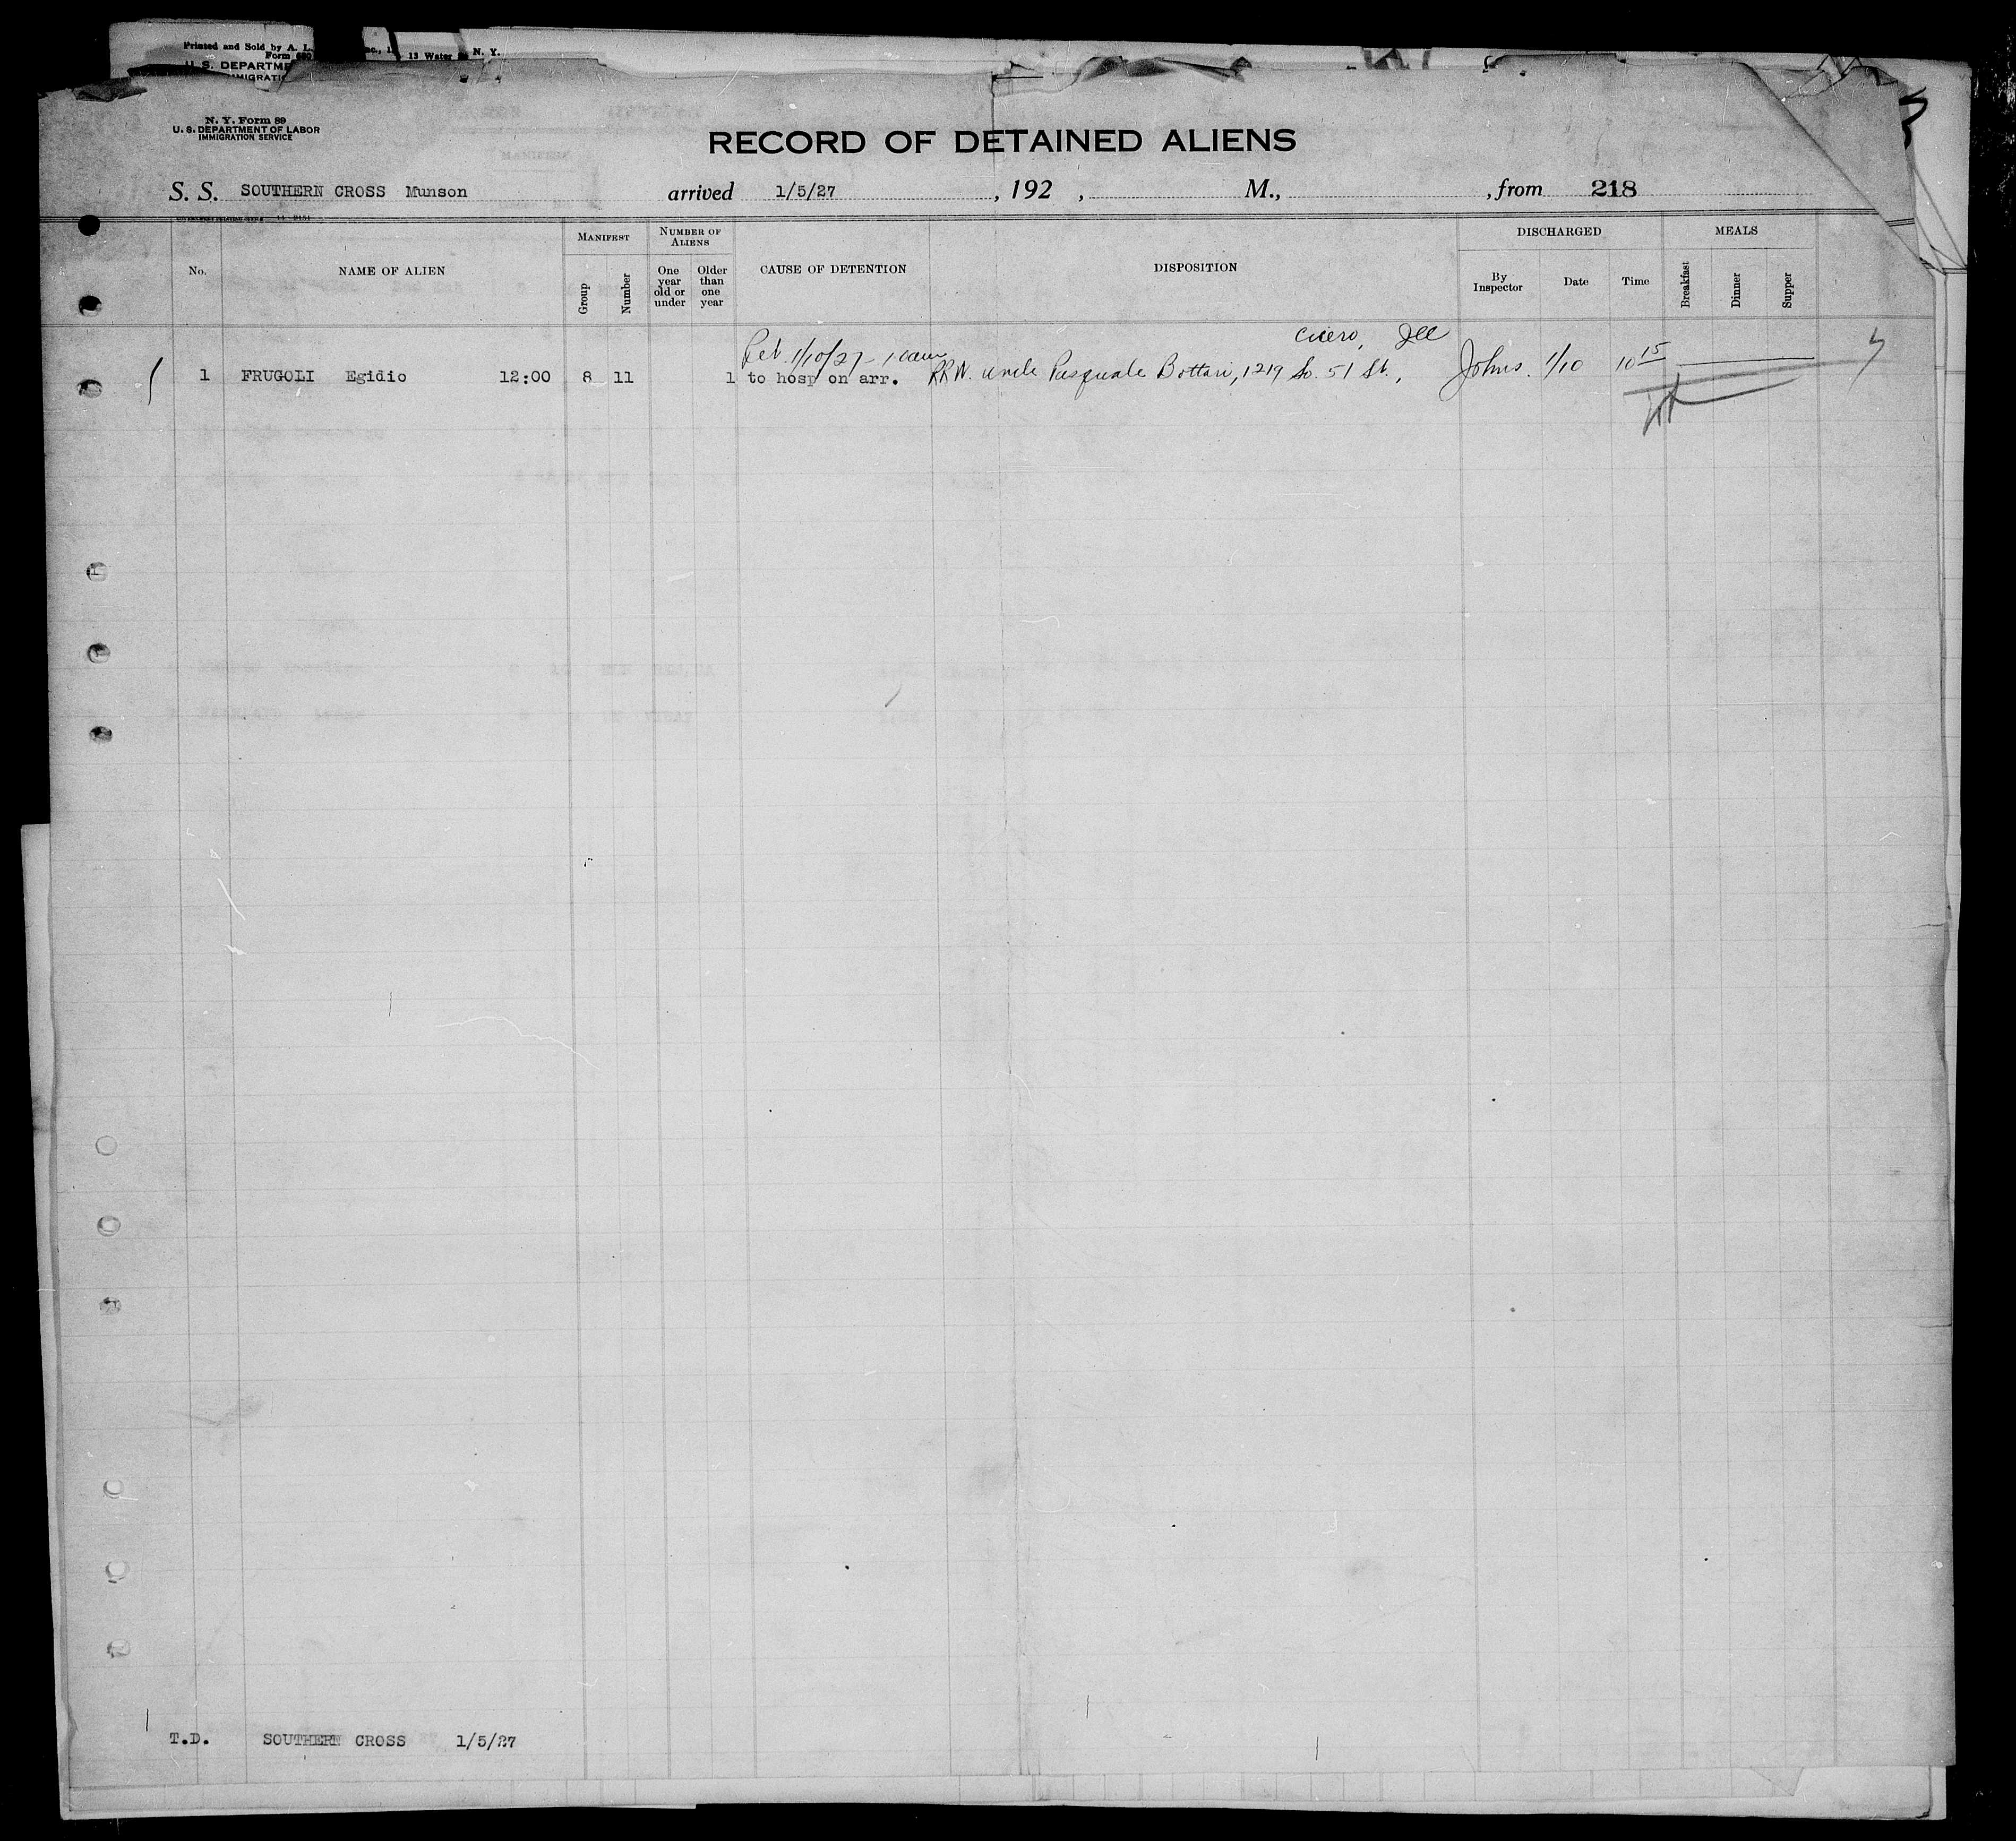 Printed and Sold by A. L.
nc., 1
13 Water
N. Y.
Form 630
U. S. DEPARTME
IMMIGRATI
N. Y. Form 89
U. S. DEPARTMENT OF LABOR
IMMIGRATION SERVICE
RECORD OF DETAINED ALIENS
S. S. SOUTHERN CROSS Munson arrived 1/5/27, 192 , M., , from 218
No. NAME OF ALIEN MANIFEST Group Number NUMBER OF ALIENS One year old or under Older than one year CAUSE OF DETENTION DISPOSITION DISCHARGED By Inspector Date Time MEALS Breakfast Dinner Supper
Ret. 1/10/27 - 10am Cicero, Ill
1 FRUGOLI Egidio 12:00 8 11 1 to hosp on arr. RRN. uncle Pasquale Bottari, 1219 So. 51 St., Johns. 1/10 10 15
T.D. SOUTHERN CROSS 1/5/27